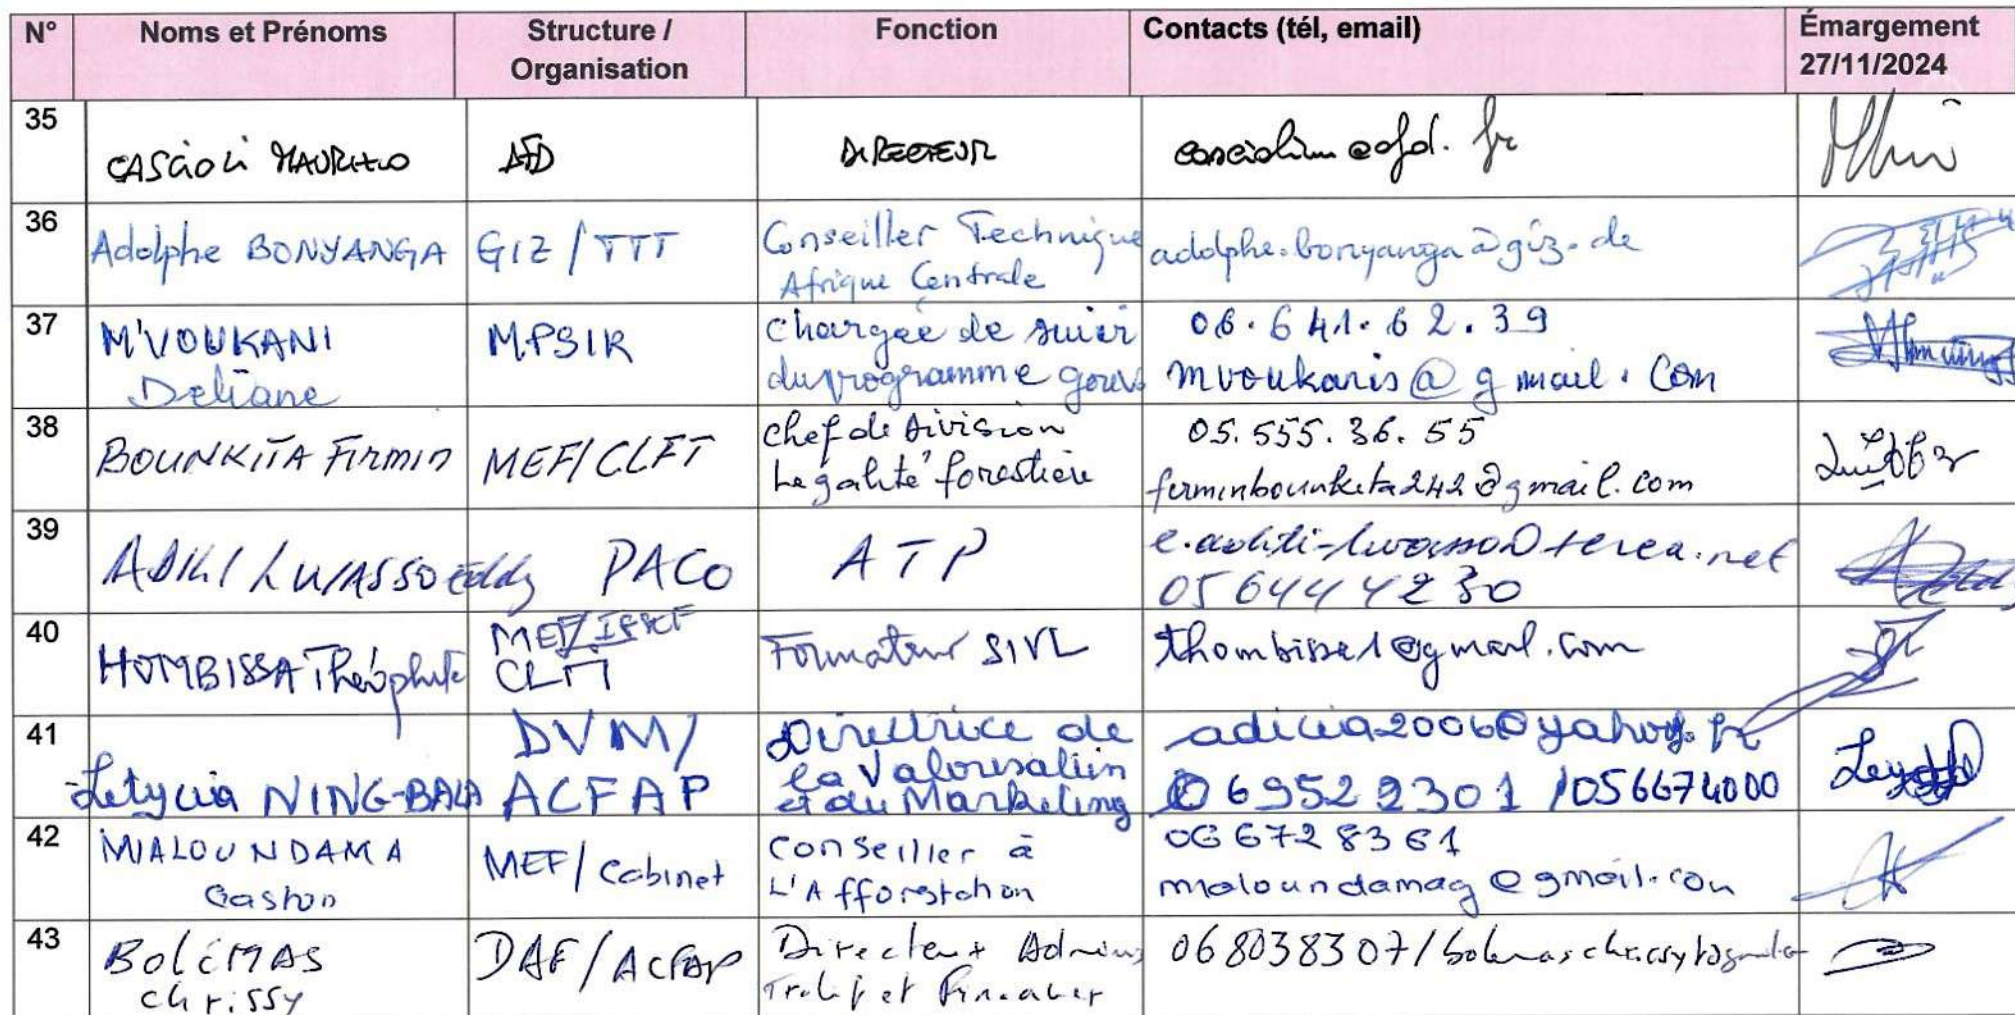 N° Noms et Prénoms Structure / Organisation Fonction Contacts (tél, email) Émargement 27/11/2024
35 CASCIOLI MAURIZIO AFD DIRECTEUR casciolim@afd.fr
36 Adolphe BONYANGA GIZ/TTT Conseiller Technique Afrique Centrale adolphe.bonyanga@giz.de
37 M'VOUKANI Deliane MPSIR Chargée de suivi du programme gouv 06.641.62.39 mvoukanis@gmail.com
38 BOUNKITA Firmin MEF/CLFT Chef de Division Légalité forestière 05.555.36.55 firminbounkita242@gmail.com
39 eddy PACO ATP 05 644 42 30
40 HOMBISSA Théophile MEF/ CLFT Formateur SIVL thombissa1@gmail.com
41 Letycia NING-BALA DVM/ ACFAP Directrice de la Valorisation et du Marketing adicia2006@yahoo.fr 069522301 /056674000
42 MIALOUNDAMA Gaston MEF/Cabinet Conseiller à L'Afforestation 06 672 83 61 maloundamag@gmail.com
43 BolEMAS chrissy DAF/ACFAP Directeur Adminis Tratif et Financier 068038307/